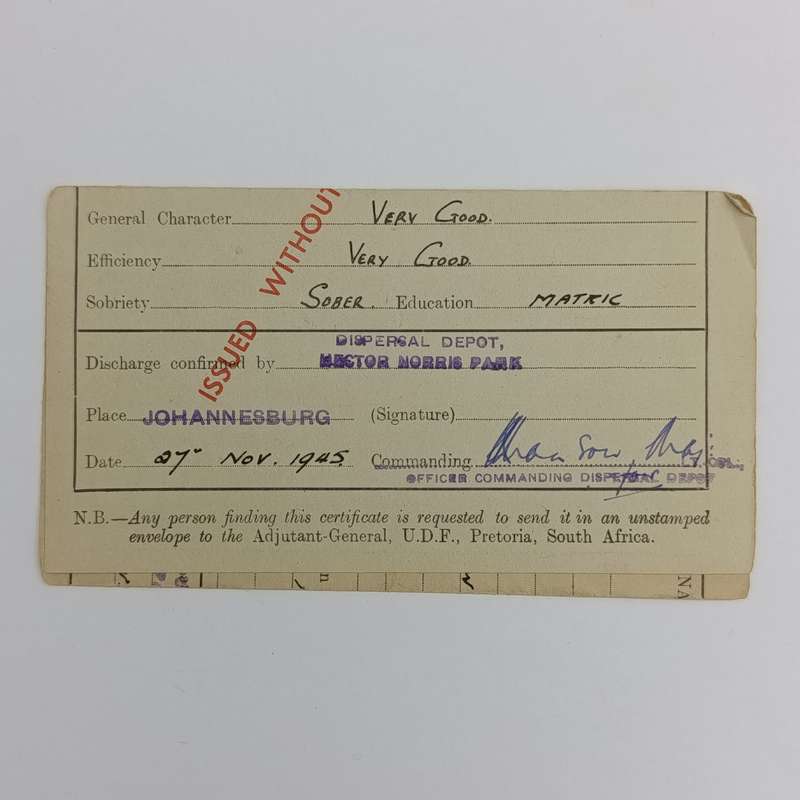 General Character Very Good.
Efficiency Very Good.
Sobriety Sober. Education MATRIC
ISSUED WITHOUT
DISPERSAL DEPOT,
Discharge confirmed by HECTOR NORRIS PARK
Place JOHANNESBURG (Signature)
Date 27 Nov. 1945 Commanding Maj:
OFFICER COMMANDING DISPERSAL DEPOT
for
N.B.—Any person finding this certificate is requested to send it in an unstamped
envelope to the Adjutant-General, U.D.F., Pretoria, South Africa.